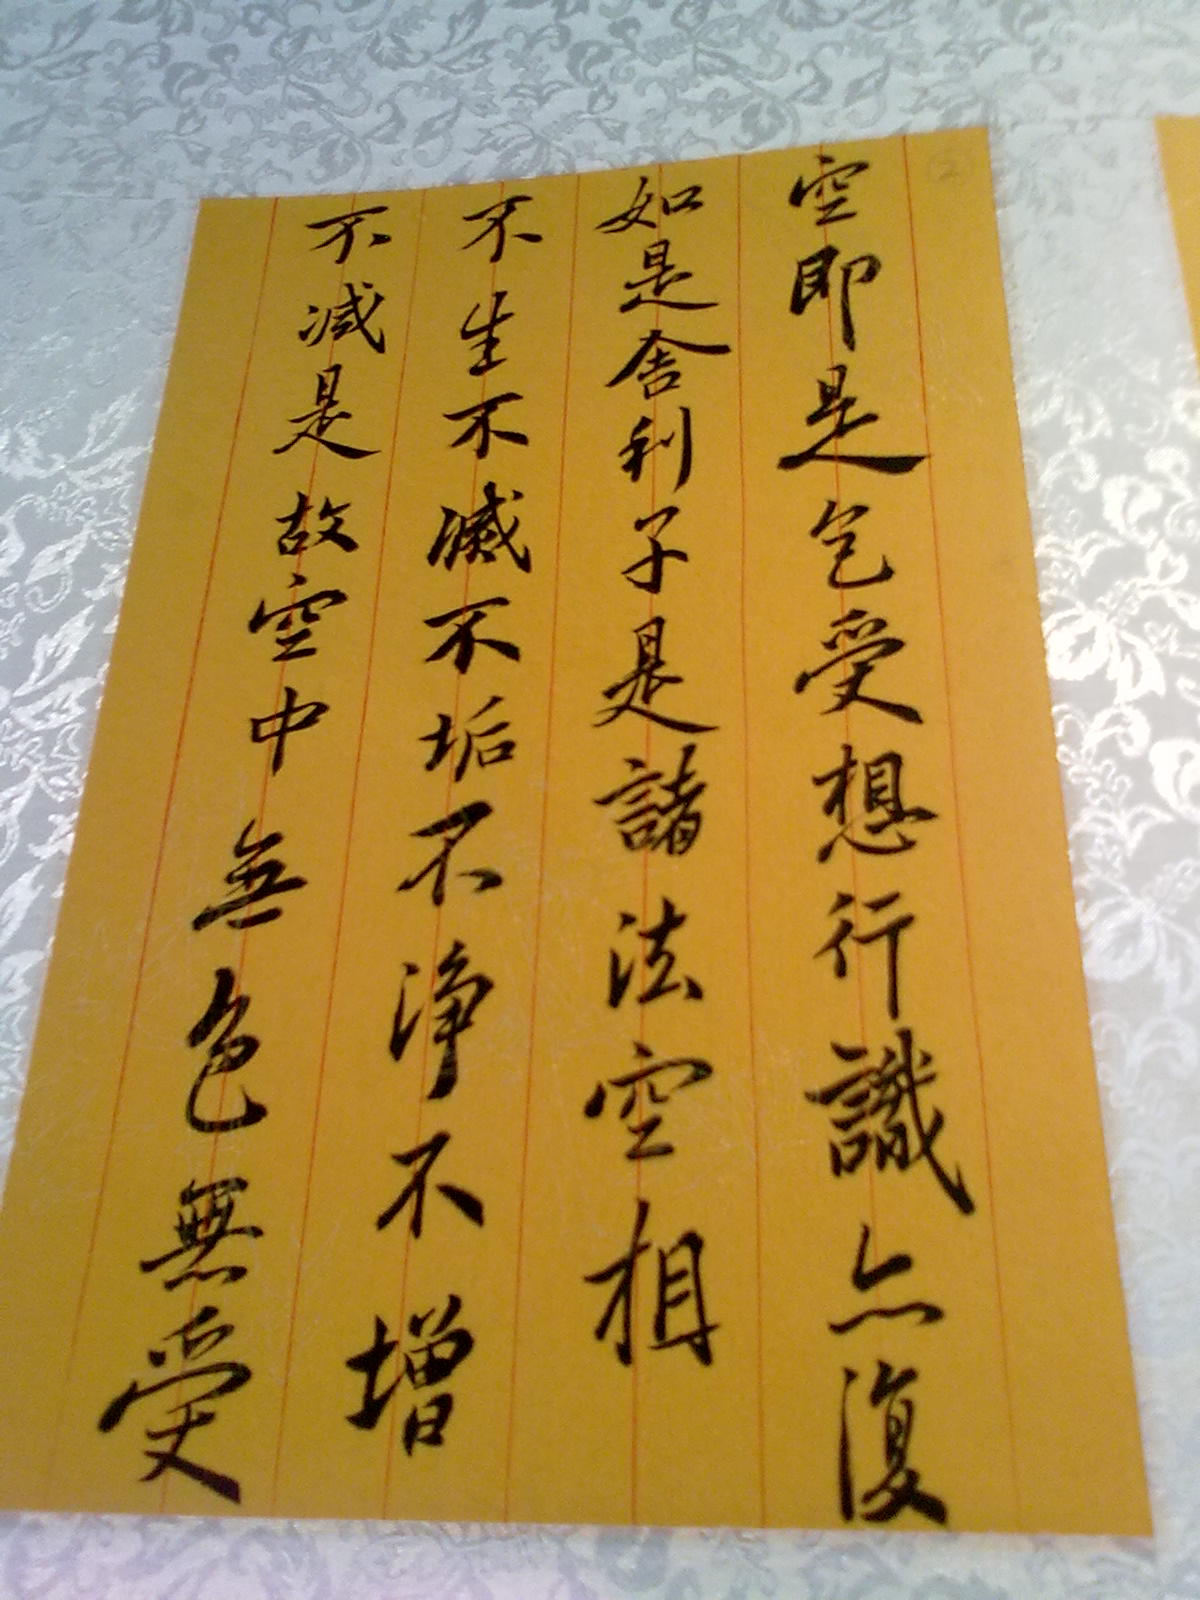 空即是色受想行識亦復
如是舍利子是諸法空相
不生不滅不垢不淨不增
不減是故空中無色無受
2